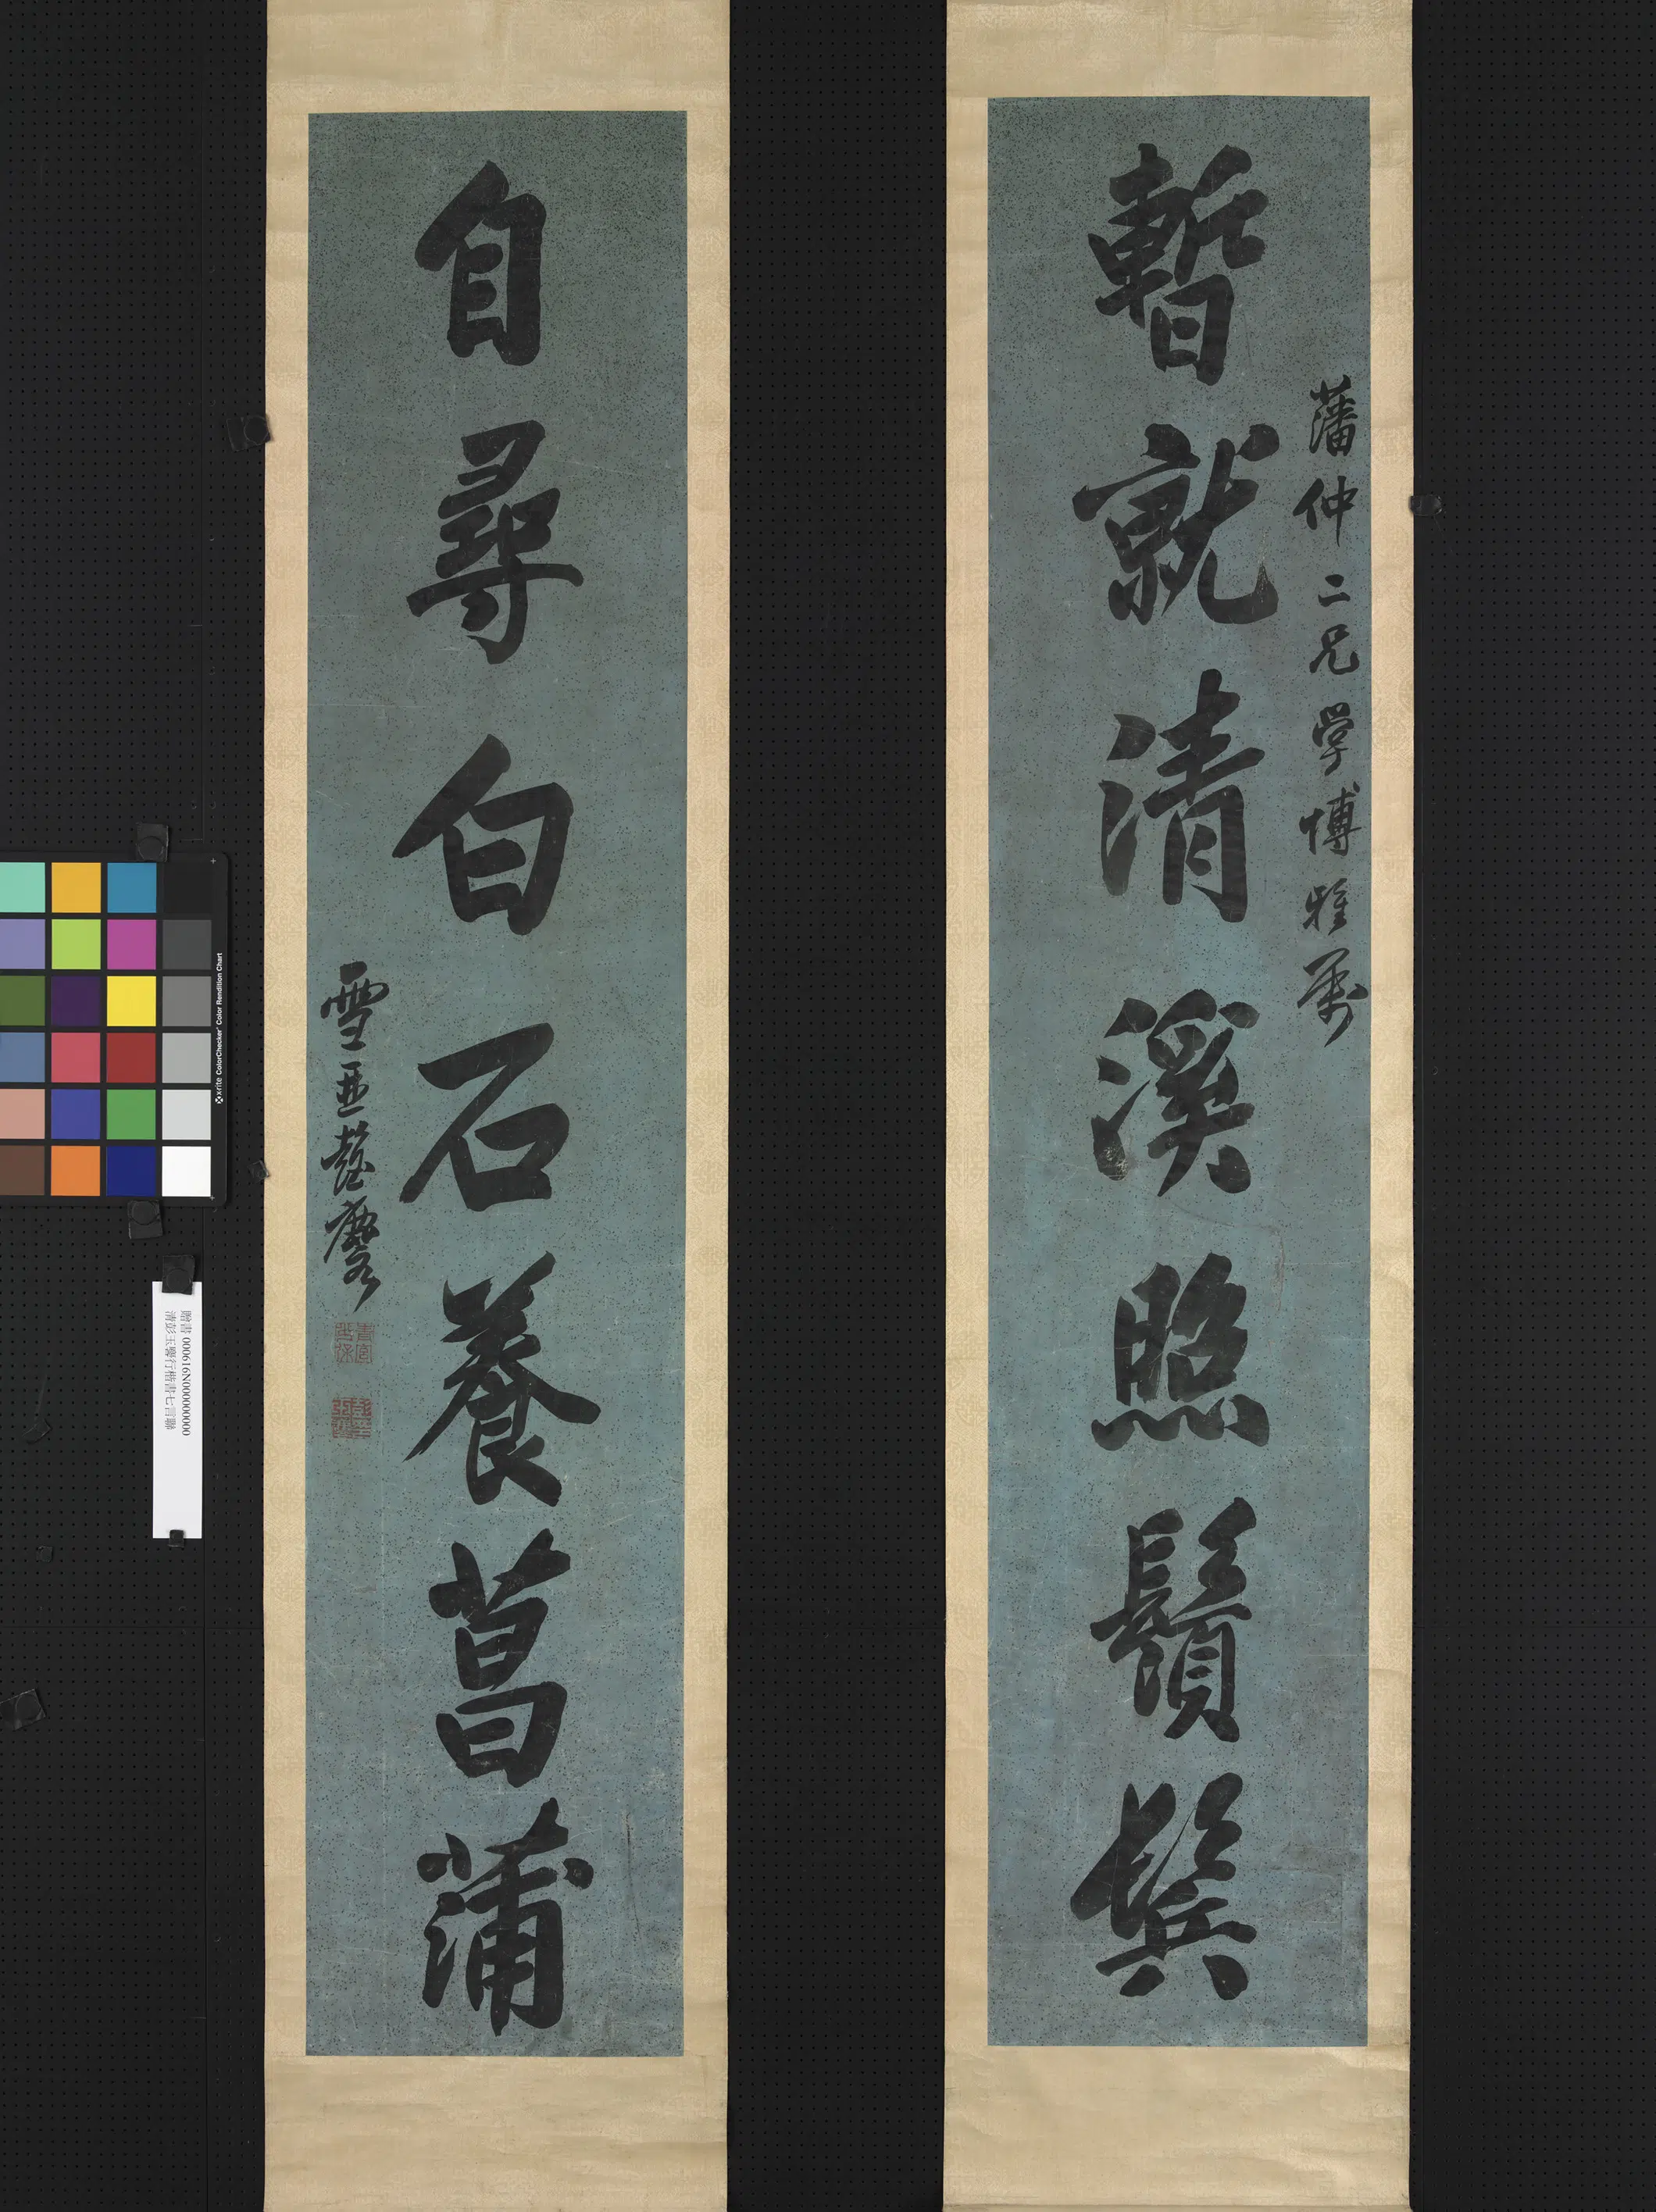 藩仲二兄學博雅屬
暫就清溪照鬚鬢
自尋白石養菖蒲
雪琴彭玉麐
贈書 000616N000000000
清彭玉麐行楷書七言聯
x-rite ColorChecker Color Rendition Chart